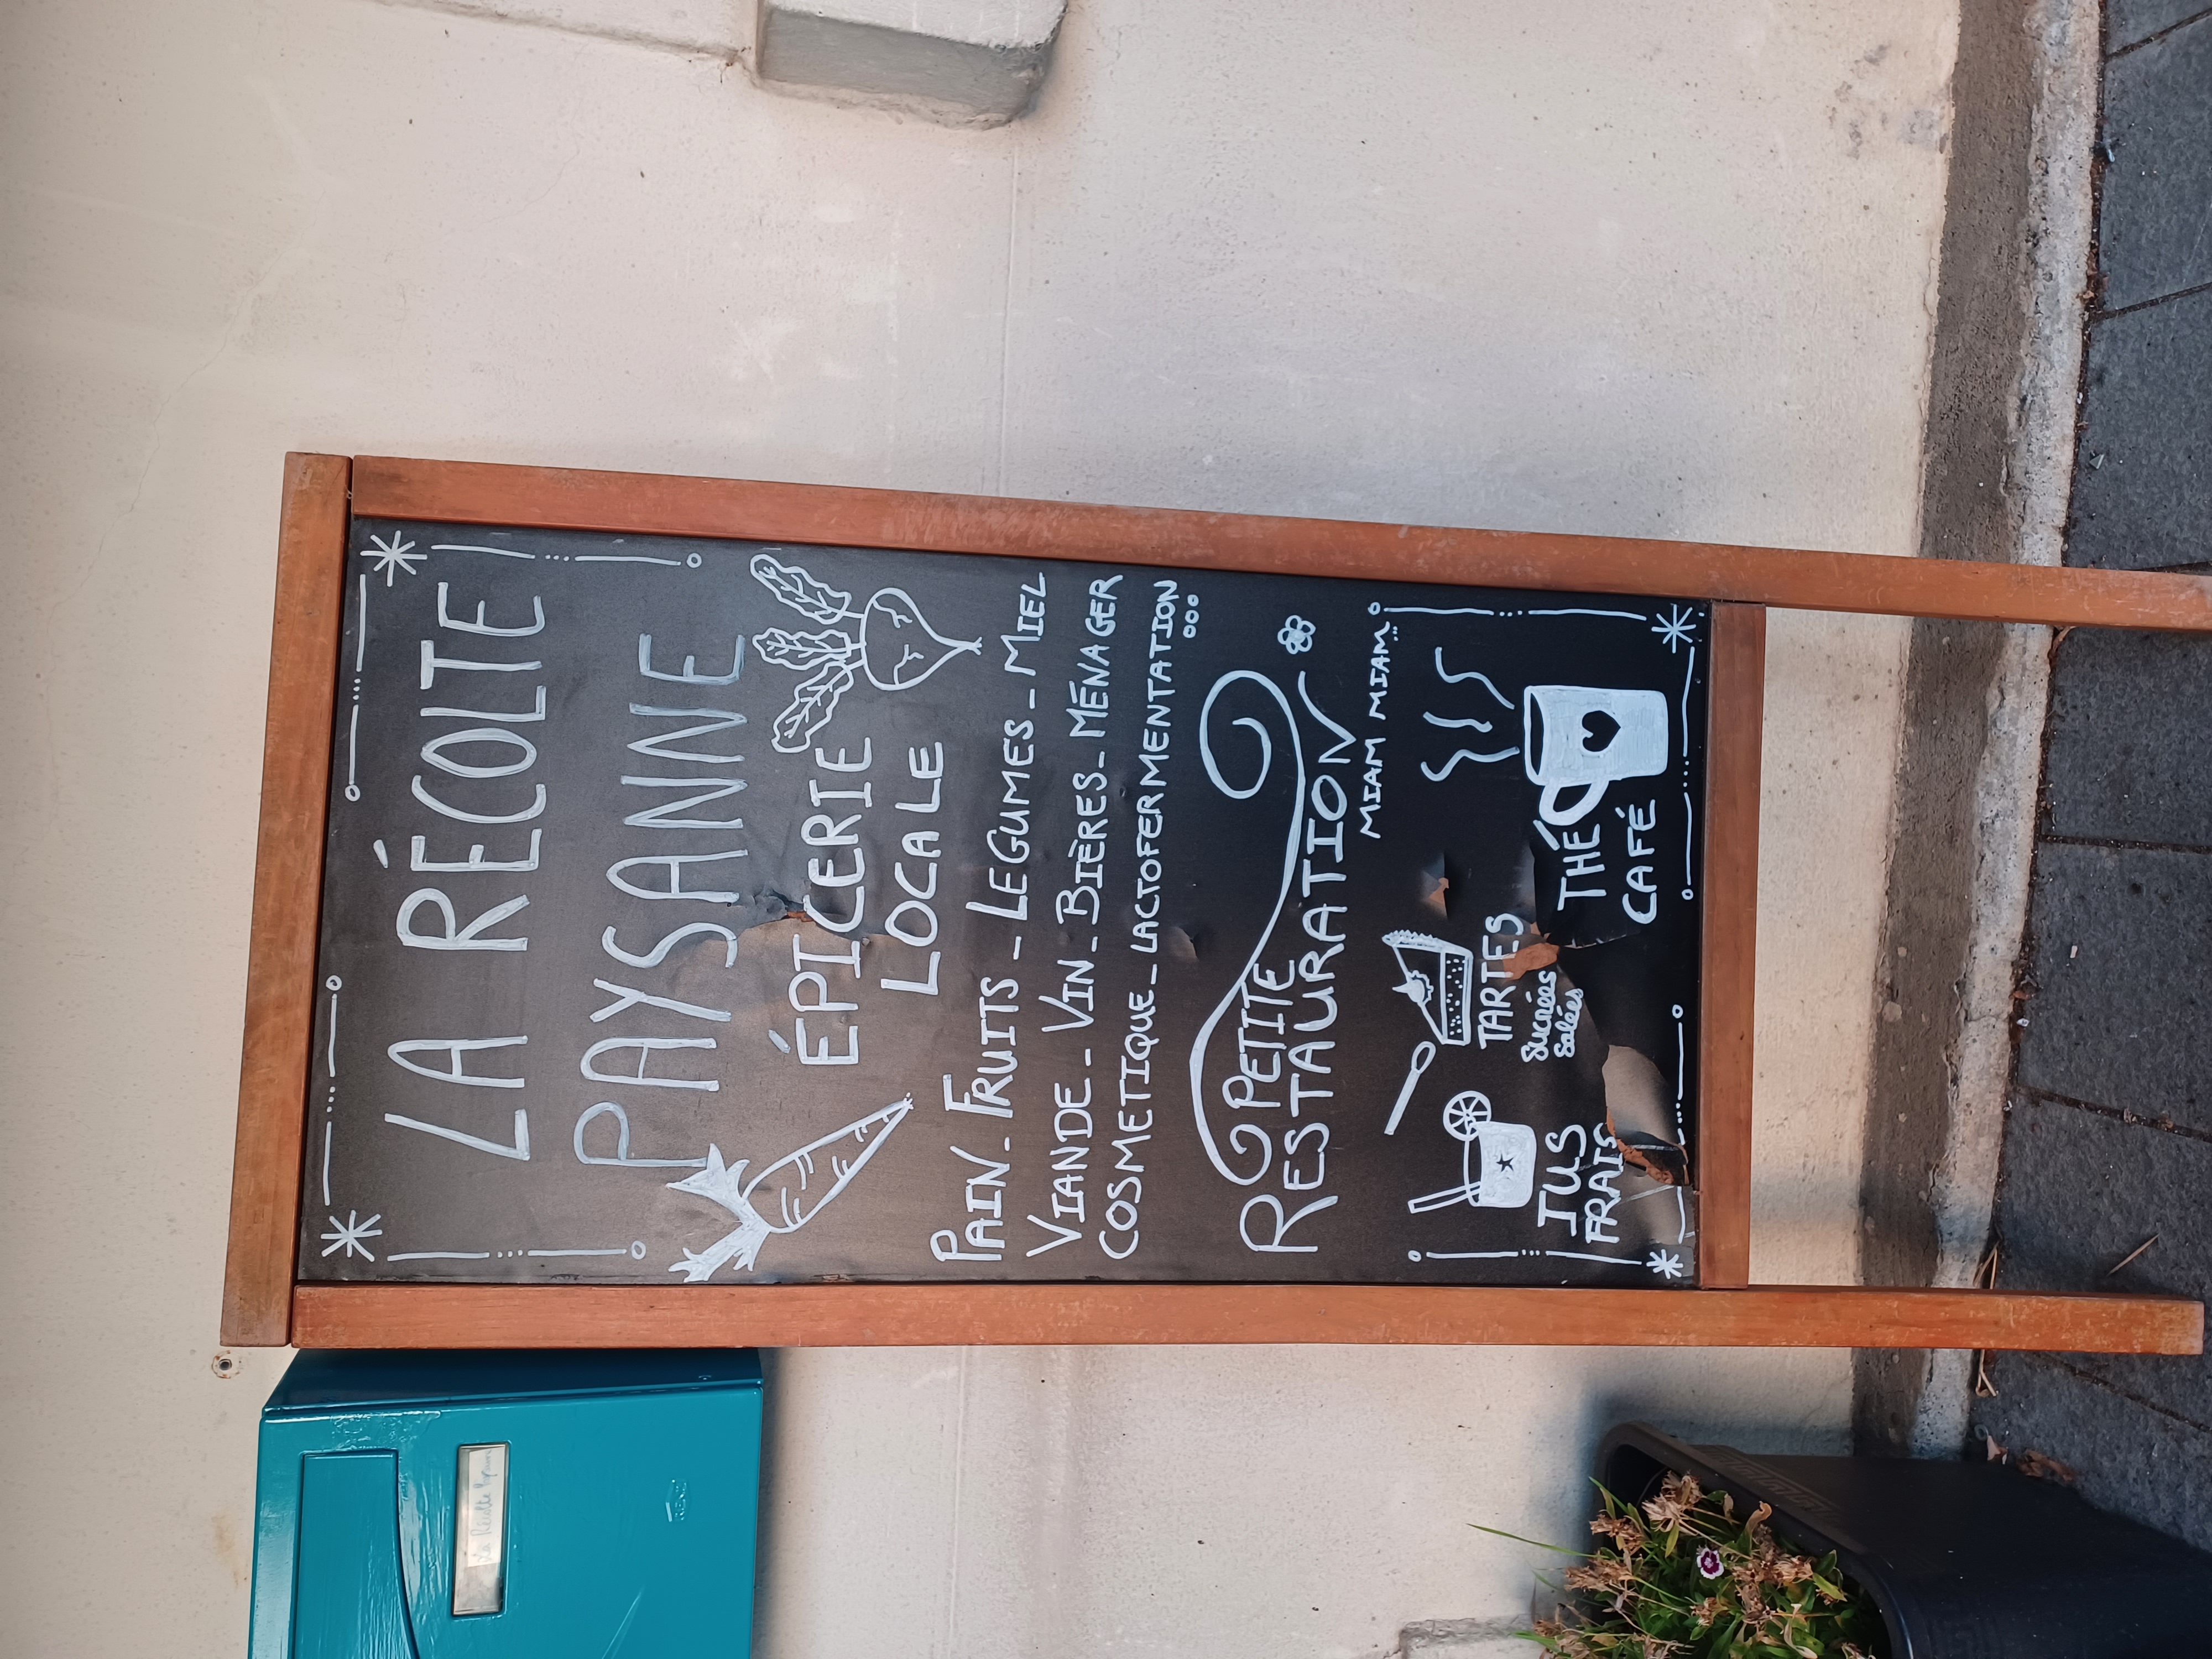 LA RÉCOLTE
PAYSANNE
ÉPICERIE
LOCALE
PAIN - FRUITS - LEGUMES - MIEL
VIANDE - VIN - BIÈRES - MÉNAGER
COSMETIQUE - LACTOFERMENTATION ...
PETITE
RESTAURATION
MIAM MIAM...
JUS
FRAIS
TARTES
Sucrées
Salées
THÉ
CAFÉ
La Récolte